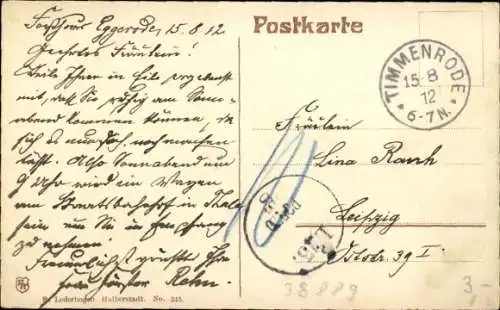 Postkarte
Forsthaus Eggerode, 15.8.12.
Geehrtes Fräulein!
Teile Ihnen in Eile ergebenst
mit, daß Sie ruhig am Sonn-
abend kommen können, da
sich es noch machen
läßt. Also Sonnabend um
9 Uhr wird ein Wagen
am Staatsbahnhof in Thale
sein um Sie in Empfang
zu nehmen.
Freundlichst grüßt Ihre
Frau Förster Rehn.
TIMMENRODE
15 8
12
* 6-7 N. *
Fräulein
Lina Rauh
Leipzig
Iststr. 39 I
R. Lederbogen, Halberstadt. No. 315.
38889
3-